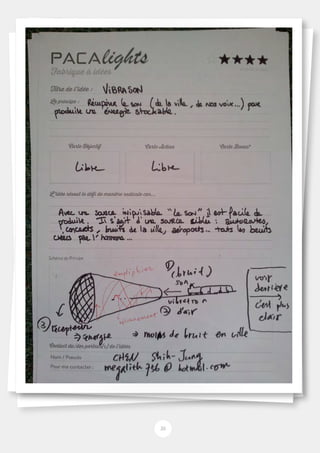 PACAlights
Fabrique à idées
Titre de l'idée : VIBRASON
Le principe : Récupérer le son (de la ville, de nos voix...) pour
produire une énergie stockable.
Carte Objectif
Carte Action
Carte Bonus*
Libre
Libre
L'idée résout le défi de manière radicale car...
Avec une source inépuisable "le son", il est facile de
produire. Il s'agit d'une source ciblée : autoroutes,
concerts, bruits de la ville, aéroports... tous les bruits
créés par l'homme ...
Schéma de Principe
amplifier
① (bruit)
son
vibration
② d'air
③ récepteur
⇒ énergie
→ moins de bruit en ville
voir
derrière
c'est plus
clair
Contact du/des porteur(s) de l'idée
Nom / Pseudo : CHEN Shih-Jung
Pour me contacter : megalith756@hotmail.com